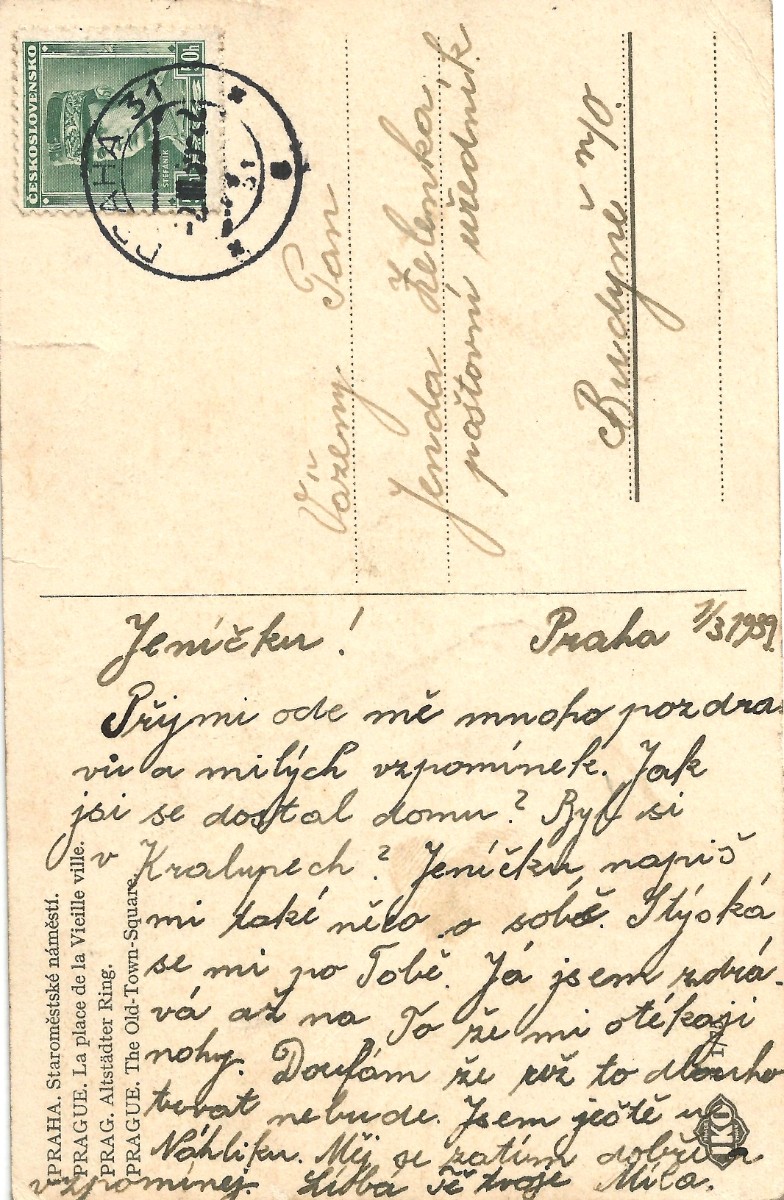 ČESKOSLOVENSKO
50h
ŠTEFÁNIK
PRAHA 31
Vážený Pan
Jenda Zelenka,
poštovní úředník
Budyně n/O.
Jeníčku!
Praha 1/3 1939.
Přijmi ode mě mnoho pozdra-
vů a milých vzpomínek. Jak
jsi se dostal domu? Byl si
v Kralupech? Jeníčku napiš
mi také něco o sobě. Stýská
se mi po Tobě. Já jsem zdrá-
vá až na To že mi otékaji
nohy. Doufám že už to dlouho
trvat nebude. Jsem ještě u
Náhliku. Měj se zatím dobře a
vzpomínej. Líbá tě tvoje Míla.
PRAHA. Staroměstské náměstí.
PRAGUE. La place de la Vieille ville.
PRAG. Altstädter Ring.
PRAGUE. The Old-Town-Square.